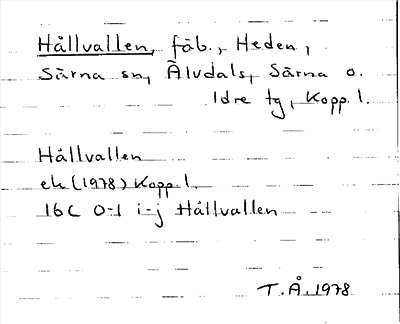 Hållvallen, fäb., Heden,
Särna sn, Älvdals, Särna o.
Idre tg, Kopp. l.
Hållvallen
ek (1978) Kopp. l.
16C 0-1 i-j Hållvallen
T. Å. 1978